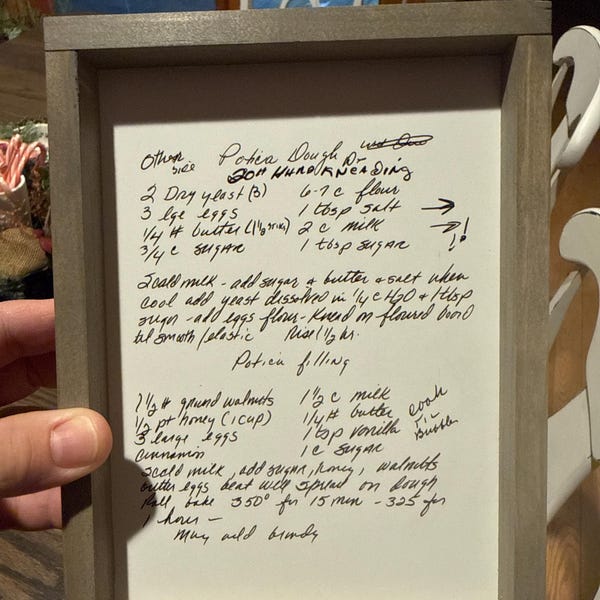 Other side
Potica Dough
HAND KNEADING
2 Dry yeast (3) 6-7 c flour
3 lge eggs 1 tbsp salt →
1/4 # butter (1 1/2 sticks) 2 c milk →!
3/4 c sugar 1 tbsp sugar !?
Scald milk - add sugar & butter & salt when
cool add yeast dissolved in 1/4 c H2O & 1 tbsp
sugar - add eggs flour - knead on floured board
til smooth/elastic Rise 1 1/2 hr.
Potica filling
1 1/2 # ground walnuts 1 1/2 c milk
1/2 pt honey (1 cup) 1/4 # butter cook
3 large eggs 1 tsp vanilla
cinnamon 1 c sugar
Scald milk, add sugar, honey, walnuts
butter eggs beat well spread on dough
Roll bake 350° for 15 min - 325 for
1 hour -
May add brandy